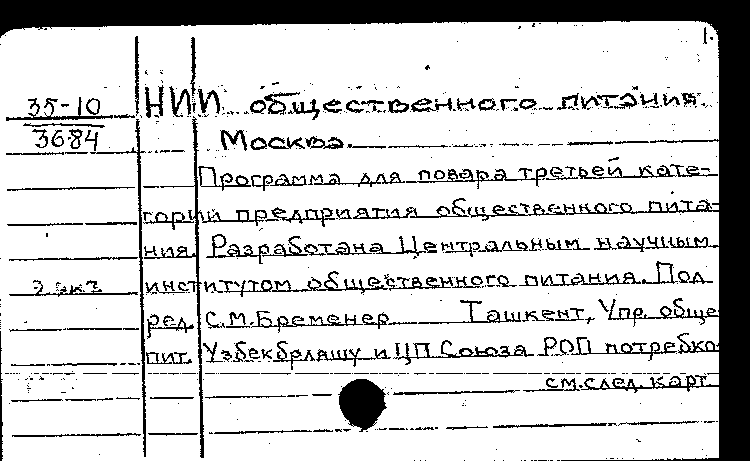 1.
35-10 НИИ общественного питания.
3684 Москва.
Программа для повара третьей кате-
гории предприятия общественного пита-
ния. Разработана Центральным научным
2 экз институтом общественного питания. Под
ред. С.М.Бременер Ташкент, Упр. обще
пит. Узбекбрляшу и ЦП Союза РОП потребко
см.след. карт.